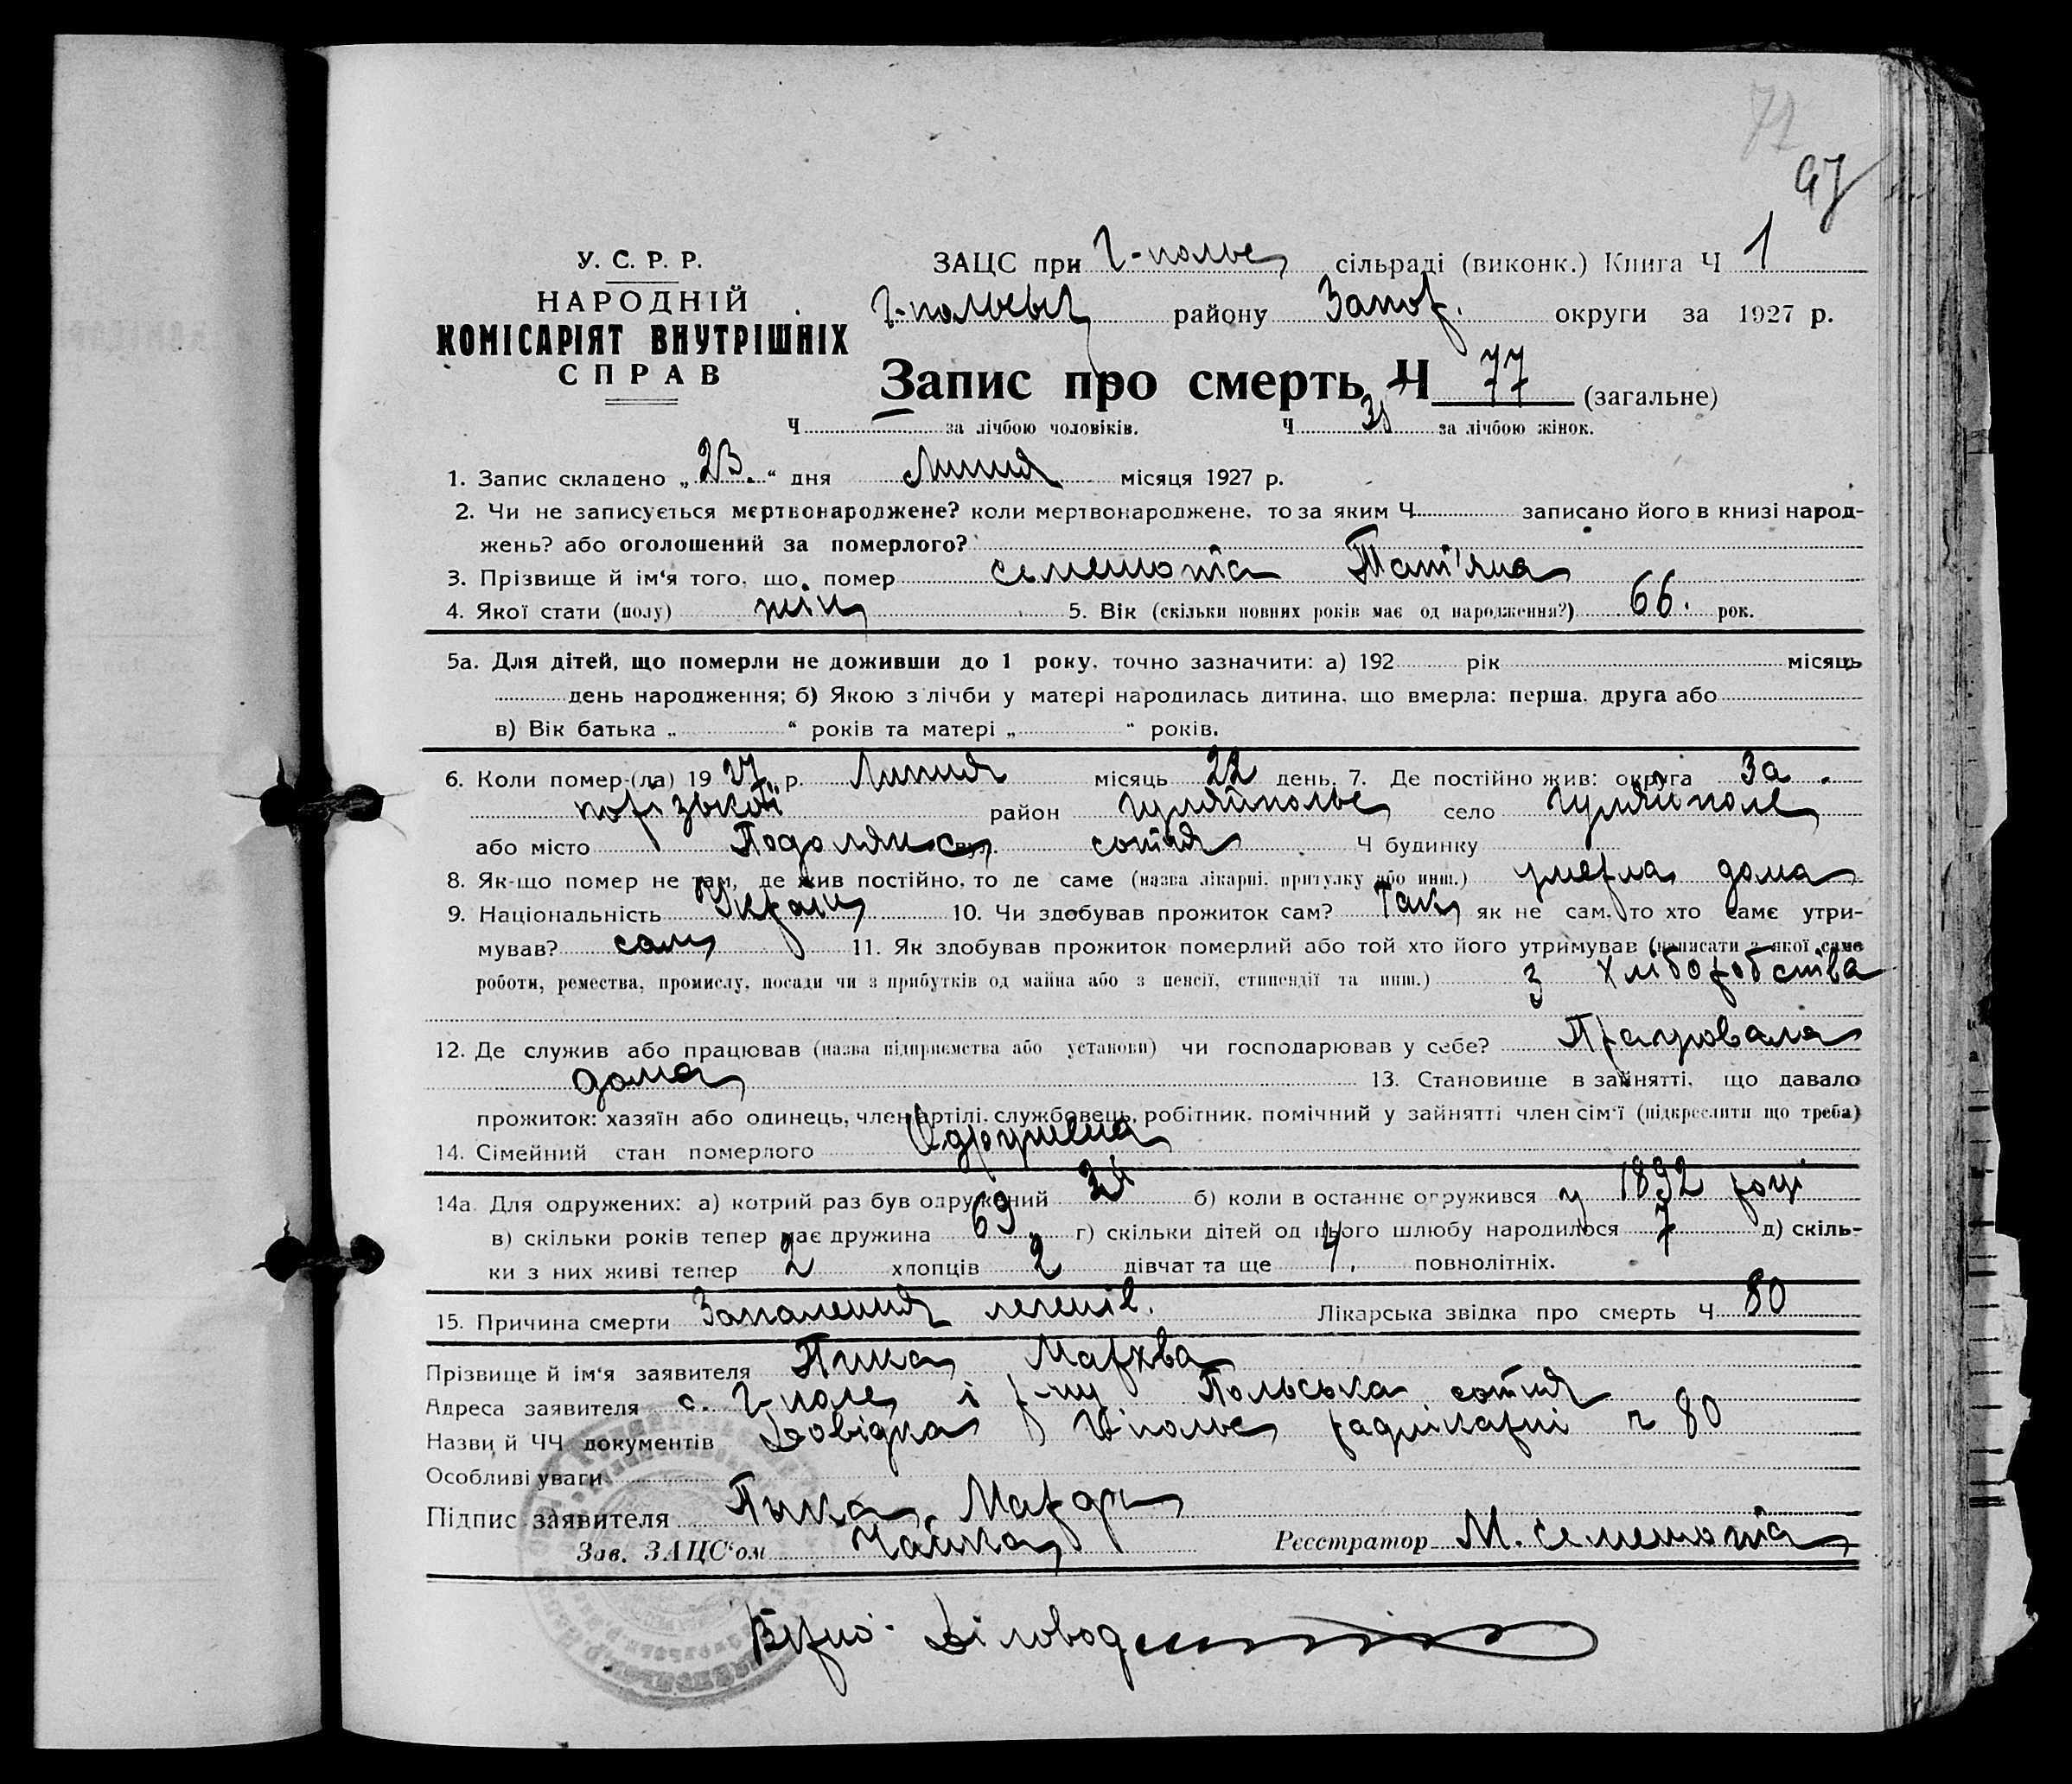 71
97
У. С. Р. Р.
НАРОДНІЙ
КОМІСАРІЯТ ВНУТРІШНІХ
СПРАВ
ЗАЦС при Г-польє сільраді (виконк.) Книга Ч 1
Г-польськ району Запор. округи за 1927 р.
Запис про смерть Ч 77 (загальне)
Ч — за лічбою чоловіків. Ч за лічбою жінок.
1. Запис складено „23.“ дня Липня місяця 1927 р.
2. Чи не записується мертвонароджене? коли мертвонароджене, то за яким Ч записано його в книзі народ-
жень? або оголошений за померлого?
3. Прізвище й ім'я того, що помер Семенюта Тат'яна
4. Якої стати (полу) жін 5. Вік (скільки повних років має од народження?) 66. рок.
5а. Для дітей, що померли не доживши до 1 року, точно зазначити: а) 192 рік місяць
день народження; б) Якою з лічби у матері народилась дитина, що вмерла: перша, друга або
в) Вік батька „ “ років та матері „ “ років.
6. Коли помер-(ла) 19 27 р. Липня місяць 22 день. 7. Де постійно жив: округа За
порізької район Гуляйпольє село Гуляйполе
або місто Подолянс вул. сотня Ч будинку
8. Як-що помер не там, де жив постійно, то де саме (назва лікарні, притулку або инш.) умерла дома
9. Національність Україн 10. Чи здобував прожиток сам? Так як не сам, то хто саме утри-
мував? сам 11. Як здобував прожиток померлий або той хто його утримував (написати з якої саме
роботи, ремества, промислу, посади чи з прибутків од майна або з пенсії, стипендії та инш.) з хліборобства
12. Де служив або працював (назва підприємства або установи) чи господарював у себе? Працювала
дома 13. Становище в зайнятті, що давало
прожиток: хазяїн або одинець, член артілі, службовець, робітник, помічний у зайнятті член сім'ї (підкреслити що треба)
14. Сімейний стан померлого Одружена
14а. Для одружених: а) котрий раз був одружений б) коли в останнє одружився у 1892 році
в) скільки років тепер має дружина 69 г) скільки дітей од цього шлюбу народилося 7 д) скіль-
ки з них живі тепер 2 хлопців 2 дівчат та ще 4. повнолітніх.
15. Причина смерти Запалення легенів. Лікарська звідка про смерть Ч 80
Прізвище й ім'я заявителя Пика Мархва
Адреса заявителя с. Г-поле і р-ну Польська сотня
Назви й ЧЧ документів Довідка Г'польє радлікарні ч 80
Особливі уваги
Підпис заявителя Пика
Зав. ЗАЦС'ом Чайка Реєстратор М. Семенюта
Вірно: Діловод